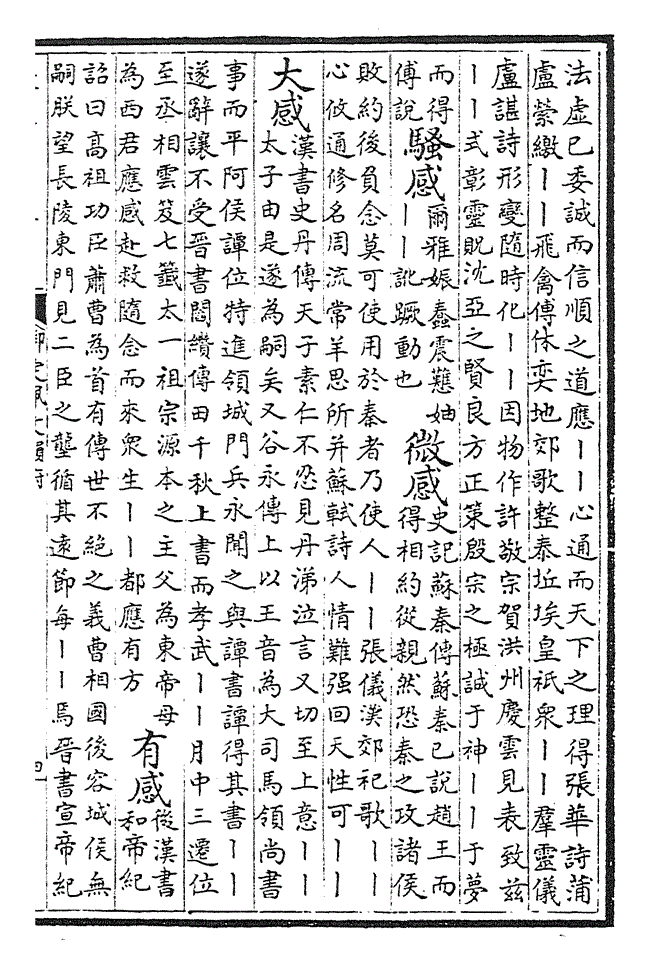 法虛已委誠而信順之道應丨丨心通而天下之理得張華詩蒲
盧縈繳丨丨飛禽傅休奕地郊歌整泰坵埃皇祇衆丨丨羣靈儀
盧諶詩形變隨時化丨丨因物作許敬宗賀洪州慶雲見表致茲
丨丨式彰靈貺沈亞之賢良方正策殷宗之極誠于神丨丨于夢
而得
傅說
騷感
爾雅娠蠢震戁妯
丨丨訛蹶動也
微感
史記蘇秦傳蘇秦已說趙王而
得相約從親然恐秦之攻諸侯
敗約後負念莫可使用於秦者乃使人丨丨張儀漢郊祀歌丨丨
心攸通修名周流常羊思所并蘇軾詩人情難强回天性可丨丨
大感
漢書史丹傳天子素仁不忍見丹涕泣言又切至上意丨丨
太子由是遂為嗣矣又谷永傳上以王音為大司馬領尚書
事而平阿侯譚位特進領城門兵永聞之與譚書譚得其書丨丨
遂辭讓不受晉書閻纘傳田千秋上書而孝武丨丨月中三遷位
至丞相雲笈七籤太一祖宗源本之主父為東帝母
為西君應感赴救隨念而來衆生丨丨都應有方
有感
後漢書
和帝紀
詔曰高祖功臣蕭曹為首有傳世不絕之義曹相國後容城侯無
嗣朕望長陵東門見二臣之壟循其遠節每丨丨焉晉書宣帝紀